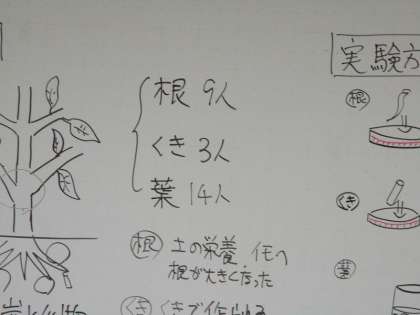 実験方
根 9人
くき 3人
葉 14人
根
くき
葉
根 土の栄養 イモへ
根が大きくなった
くき くきで作られる